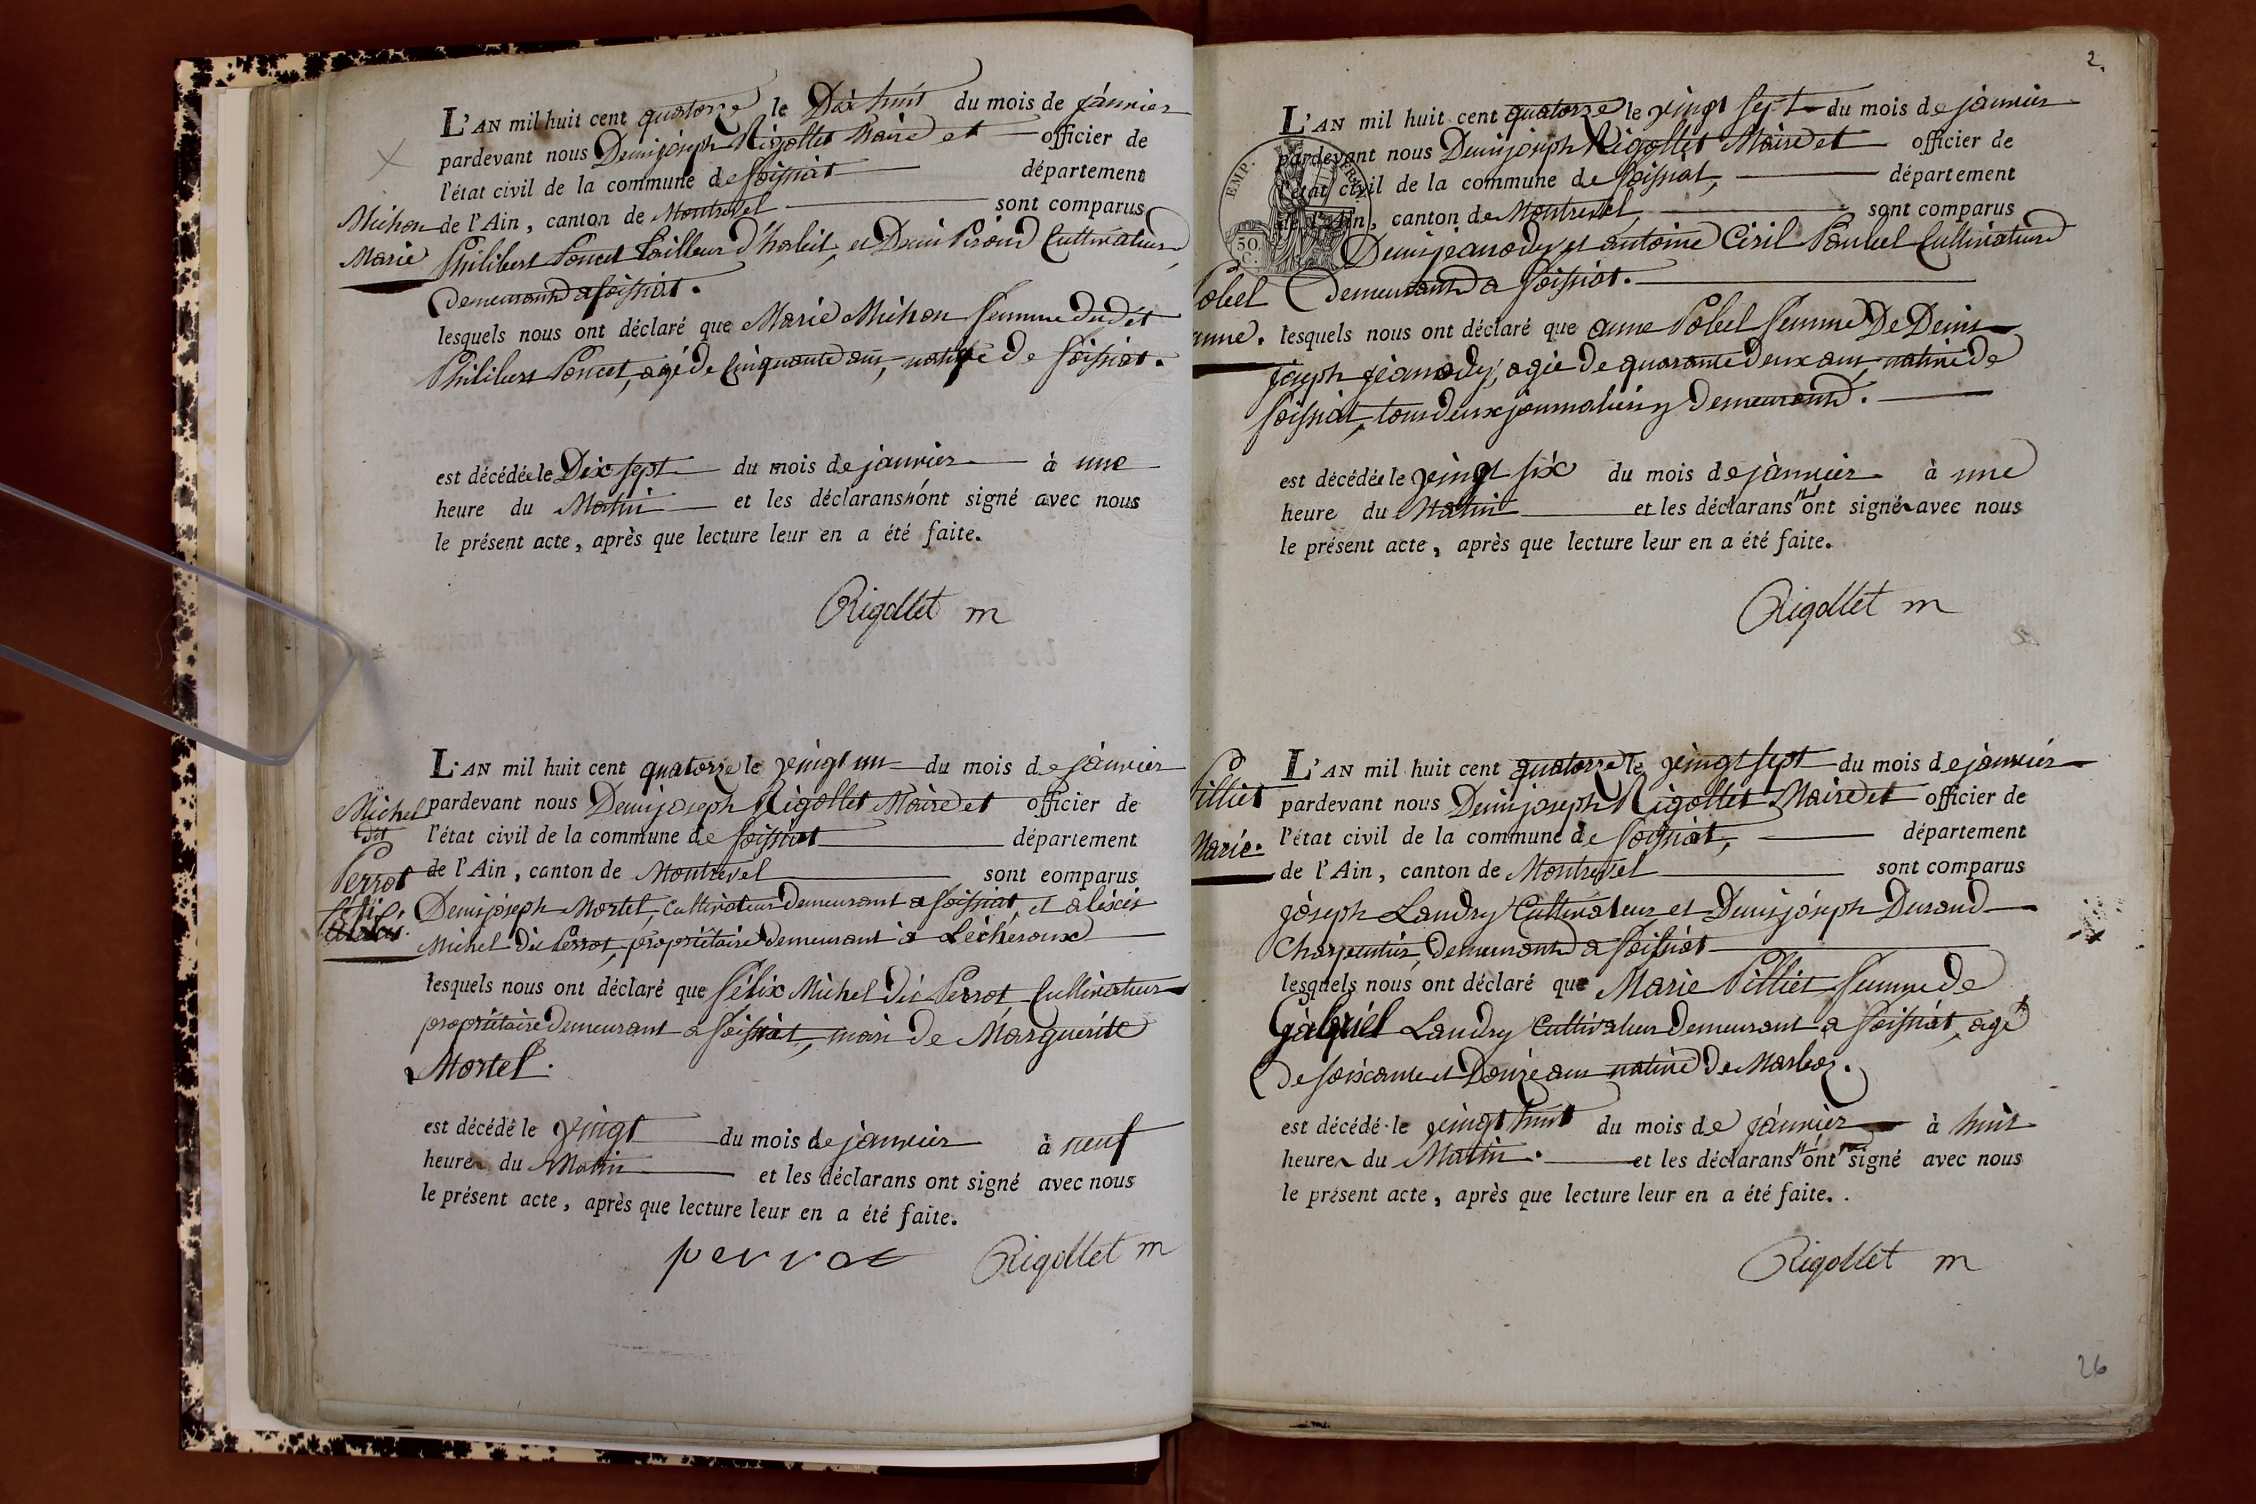 L'AN mil huit cent quatorze le Dix huit du mois de janvier
pardevant nous Denisjoseph Rigollet Maire et officier de
l'état civil de la commune de foissiat département
Michon
de l'Ain, canton de Montrevel sont comparus
Marie
Philibert Poncet tailleur d'habit, et Denis Piroud Cultivateur,
demeurant a foissiat.
lesquels nous ont déclaré que Marie Michon femme dudit
Philibert Poncet, agé de Cinquante ans, native de foissiat.
est décédée le Dix sept du mois de janvier à une
heure du Matin et les déclarans n'ont signé avec nous
le présent acte, après que lecture leur en a été faite.
Rigollet m
L'AN mil huit cent quatorze le vingt un du mois de janvier
Michel
pardevant nous Denisjoseph Rigollet Maire et officier de
dit
l'état civil de la commune de foissiat département
Perrot
de l'Ain, canton de Montrevel sont comparus
Denisjoseph Mortel, Cultivateur demeurant a foissiat, et alexis
Michel dit Perrot, propriétaire demeurant à Lécheroux
lesquels nous ont déclaré que félix Michel dit Perrot, Cultivateur
propriétaire demeurant a foissiat, mari de Marguerite
Mortel.
est décédé le vingt du mois de janvier à neuf
heures du Matin et les déclarans ont signé avec nous
le présent acte, après que lecture leur en a été faite.
perrot Rigollet m
2.
L'AN mil huit cent quatorze le vingt sept du mois de janvier
pardevant nous Denisjoseph Rigollet Maire et officier de
EMP.
l'état civil de la commune de foissiat, département
de l'Ain, canton de Montrevel, sont comparus
50.
C.
Denis jeanody et antoine Ciril Paubel Cultivateurs
obel
demeurant a foissiat.
anne.
lesquels nous ont déclaré que anne Pobel femme De Denis
joseph jeanody, agée de quarante deux ans, native de
foissiat, tous deux journaliers y demeurant.
est décédée le vingt six du mois de janvier à une
heure du Matin et les déclarans n'ont signé avec nous
le présent acte, après que lecture leur en a été faite.
Rigollet m
L'AN mil huit cent quatorze le vingt sept du mois de janvier
Pilliet
pardevant nous Denisjoseph Rigollet Maire et officier de
Marie.
l'état civil de la commune de foissiat, département
de l'Ain, canton de Montrevel sont comparus
joseph Landry Cultivateur et Denisjoseph Durand
Charpentier, demeurant a foissiat
lesquels nous ont déclaré que Marie Pilliet femme de
gabriel Landry Cultivateur demeurant a foissiat, agé
de soixante et Douze ans native de Marboz.
est décédé le vingt huit du mois de janvier à huit
heures du Matin. et les déclarans n'ont signé avec nous
le présent acte, après que lecture leur en a été faite.
Rigollet m
26